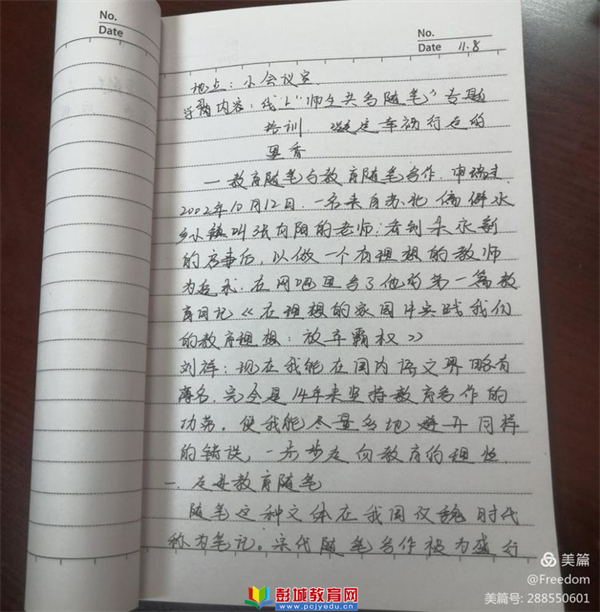 No.
Date
No.
Date 11.8
地点：小会议室
学习内容：线上“师生共写随笔”专题
培训
墨香
一 教育随笔与教育随笔写作
2002年10月12日，一名来自苏北偏僻水
乡小镇叫张向阳的老师，看到朱永新
的启事后，以做一个有理想的教师
为起点，在网吧里写了他的第一篇教
育日记《在理想的家园中实践我们
的教育理想：放弃霸权》
刘祥：现在我能在国内语文界略有
薄名，完全是14年来坚持教育写作的
功劳，使我能尽量多地避开同样
的错误，一步步走向教育的理性
一、应是教育随笔
随笔这种文体在我国汉魏时代
称为笔记。宋代随笔写作极为盛行
美篇
@Freedom
美篇号: 288550601
彭城教育网
www.pcjyedu.com